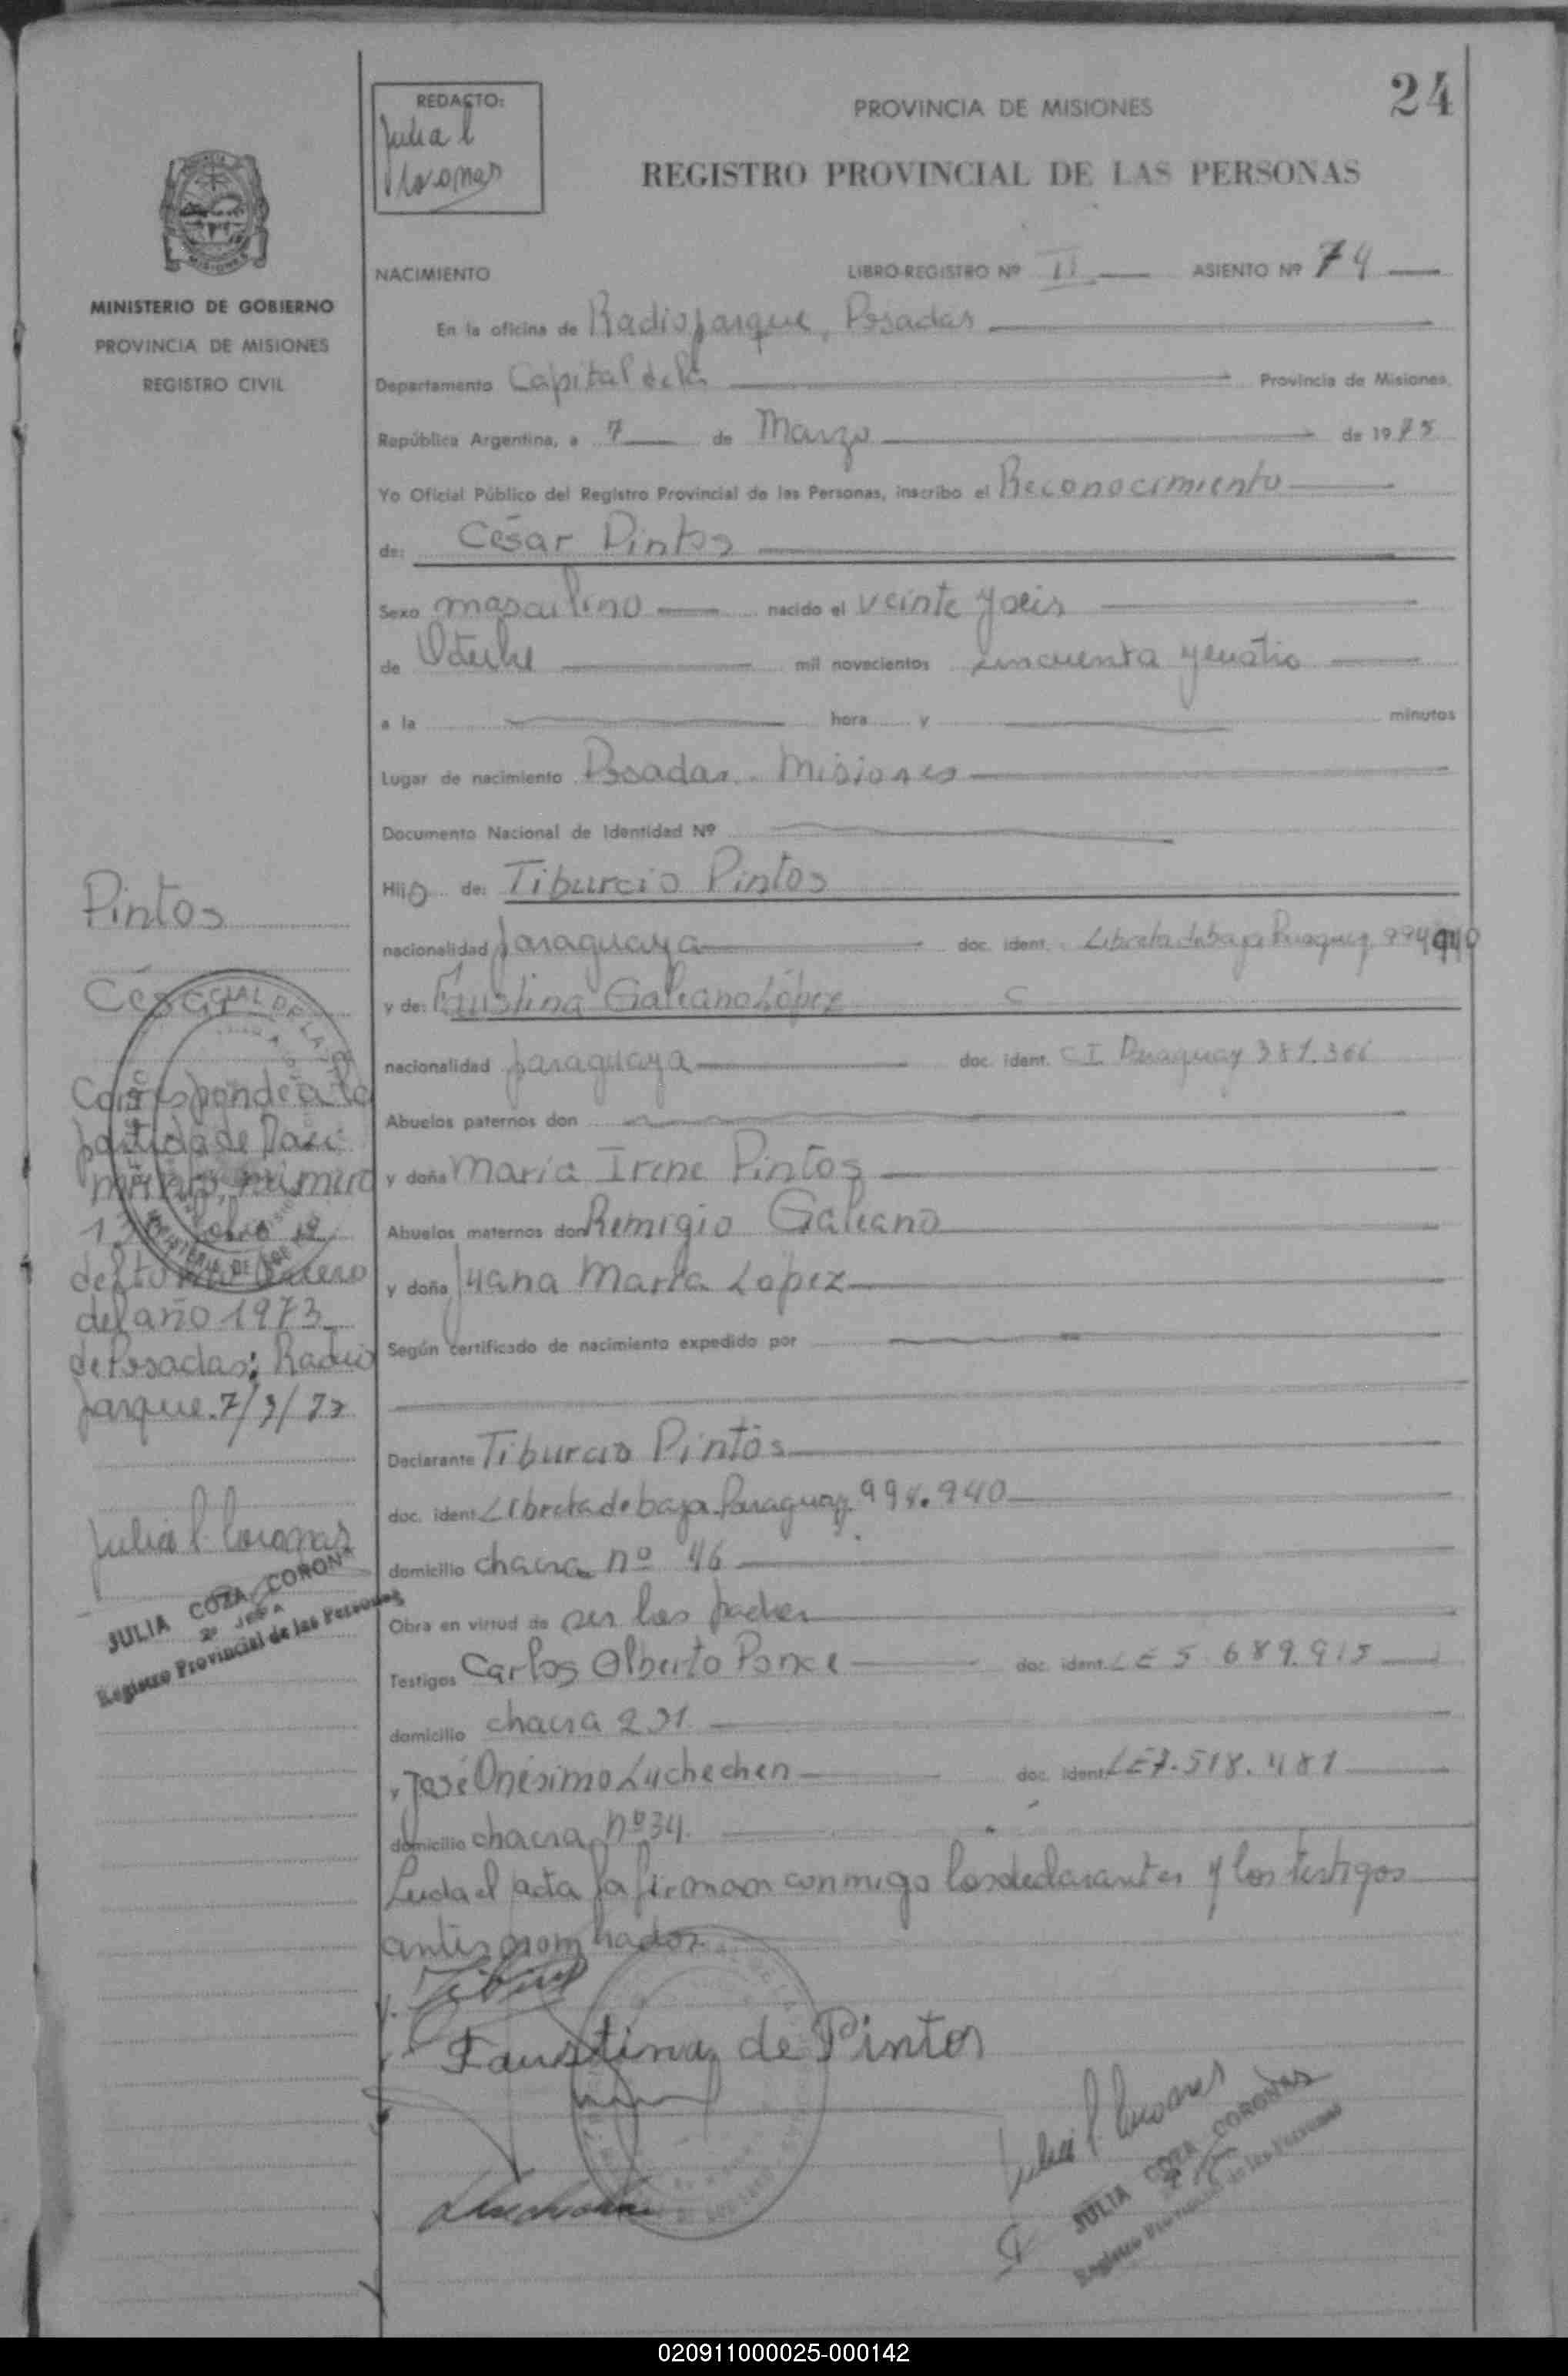 24
REDACTO:
Julia C
Coronas
PROVINCIA DE MISIONES
REGISTRO PROVINCIAL DE LAS PERSONAS
MISIONES
MINISTERIO DE GOBIERNO
PROVINCIA DE MISIONES
REGISTRO CIVIL
NACIMIENTO LIBRO-REGISTRO Nº II ASIENTO Nº 74
En la oficina de Radioparque, Posadas
Departamento Capital de la Provincia de Misiones.
República Argentina, a 7 de Marzo de 1975
Yo Oficial Público del Registro Provincial de las Personas, inscribo el Reconocimiento
de: César Pintos
Sexo masculino nacido el veinte y seis
de Octubre mil novecientos cincuenta y cuatro
a la hora y minutos
Lugar de nacimiento Posadas. Misiones
Documento Nacional de Identidad Nº
Hijo de: Tiburcio Pintos
nacionalidad paraguaya doc. ident. Libreta de baja Paraguay 994940
y de: Faustina Galeano López
nacionalidad paraguaya doc. ident. CI. Paraguay 381.366
Abuelos paternos don
y doña María Irene Pintos
Abuelos maternos don Remigio Galeano
y doña Juana María López
Según certificado de nacimiento expedido por
Declarante Tiburcio Pintos
doc. ident Libreta de baja Paraguay. 994.940
domicilio chacra nº 46
Obra en virtud de ser los padres
Testigos Carlos Alberto Ponce doc. ident. LE 5.689.915
domicilio chacra 231
y José Onésimo Luchechen doc. ident. LE 7.518.481
domicilio chacra nº 34.
Leida el acta la firman conmigo los declarantes y los testigos
antes nombrados
Faustina de Pintos
Julia C. Coronas
JULIA COZA CORONAS
Registro Provincial de las Personas
Pintos
César
Corresponde a la
partida de Naci
miento, número
del tomo primero
del año 1973
de Posadas: Radio
parque. 7/3/75
Julia C. Coronas
JULIA COZA CORONA
2º JEFA
Registro Provincial de las Personas
020911000025-000142